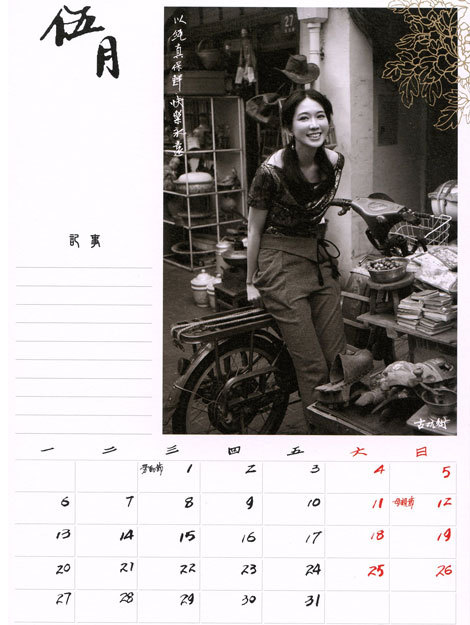 伍月
以純真保鮮快樂永遠
27
記事
一 二 三 四 五 六 日
勞動節 1 2 3 4 5
6 7 8 9 10 11 母親節 12
13 14 15 16 17 18 19
20 21 22 23 24 25 26
27 28 29 30 31